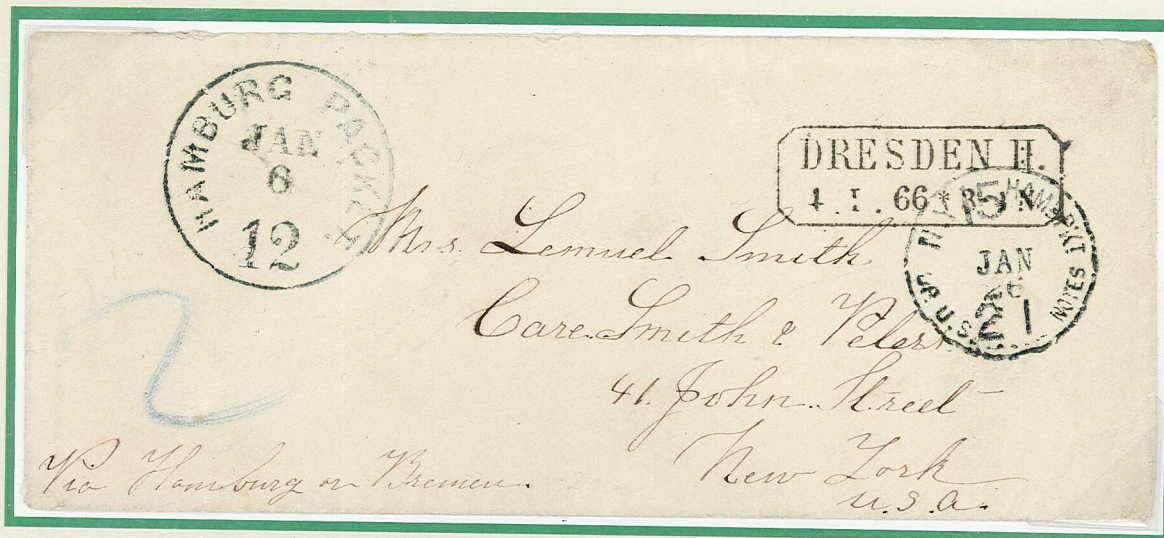 HAMBURG PACKET
JAN
6
12
DRESDEN II.
4 I. 66 * R N
N.Y. HAMB. PKT
15
JAN
26
21
OR U.S. NOTES
Mrs. Lemuel Smith,
Care. Smith & Peters
41. John. Street
New York
U.S.a.
2
Via Hamburg or Bremen.